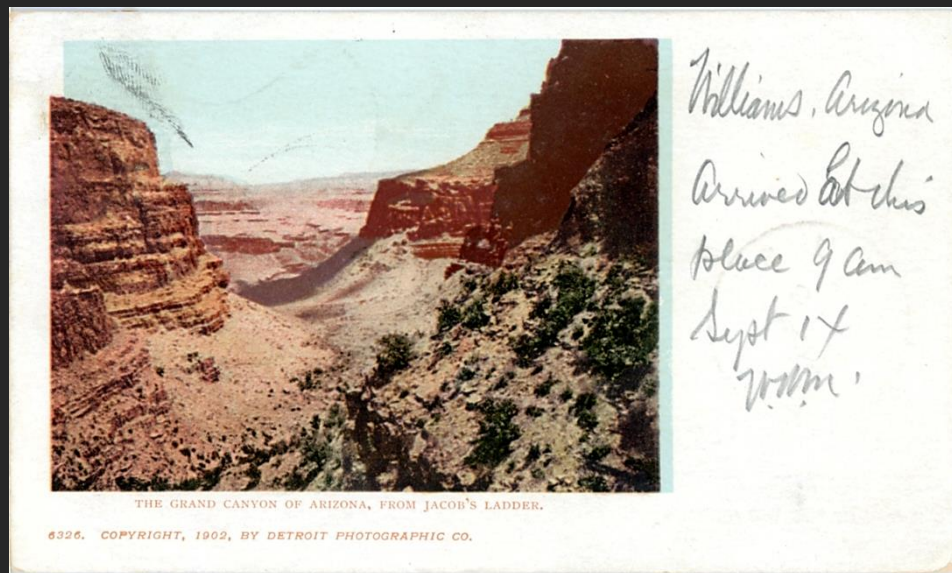 Williams, Arizona
Arrived at this
place 9 am
Sept 14
THE GRAND CANYON OF ARIZONA, FROM JACOB'S LADDER.
6326. COPYRIGHT, 1902, BY DETROIT PHOTOGRAPHIC CO.